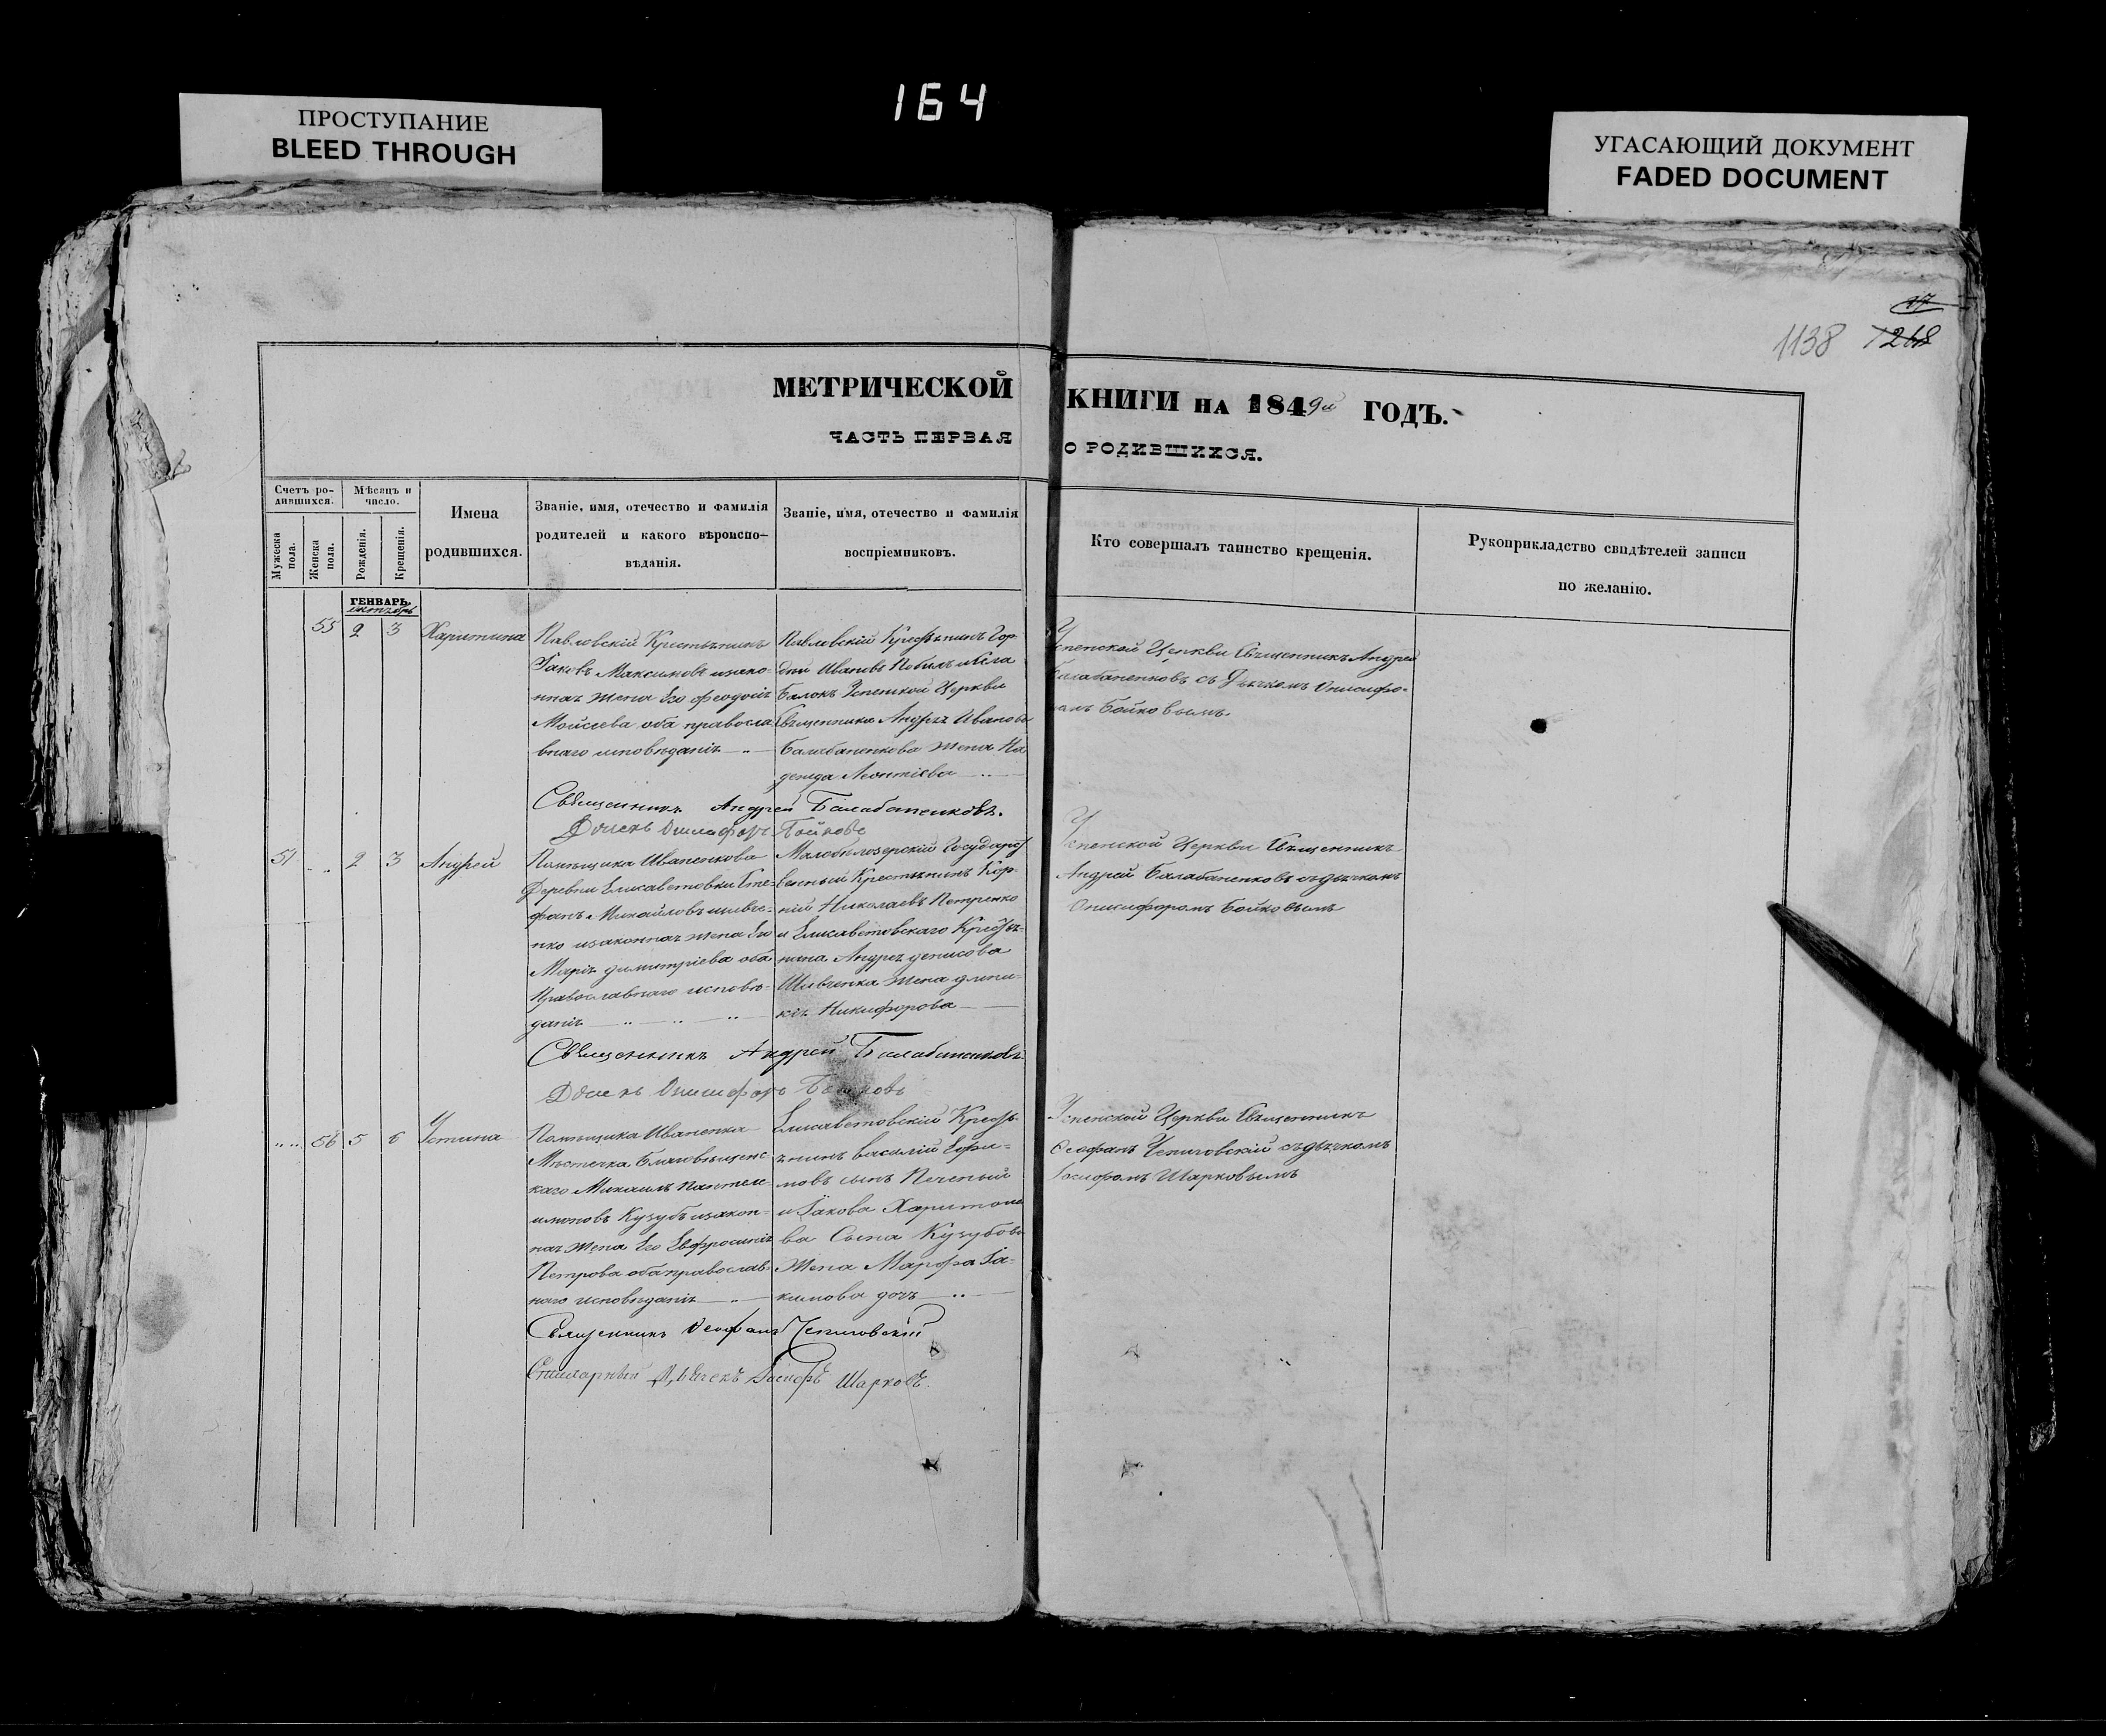 164
ПРОСТУПАНИЕ
BLEED THROUGH
УГАСАЮЩИЙ ДОКУМЕНТ
FADED DOCUMENT
17
1138 1268
МЕТРИЧЕСКОЙ КНИГИ НА 1849й ГОДЪ.
ЧАСТЬ ПЕРВАЯ О РОДИВШИХСЯ.
Счетъ ро-
дившихся.
Мѣсяцъ и
число.
Мужеска
пола.
Женска
пола.
Рожденія.
Крещенія.
Имена
родившихся.
Званіе, имя, отечество и фамилія
родителей и какого вѣроиспо-
вѣданія.
Званіе, имя, отечество и фамилія
воспріемниковъ.
Кто совершалъ таинство крещенія.
Рукоприкладство свидѣтелей записи
по желанію.
ГЕНВАРЬ.
октябрь
55 2 3 Харитина
Павловскій Крестьянинъ
Іаковъ Максимовъ изако-
нная жена Его Феодосія
Мойсеева оба правосла
внаго исповѣданія
Павловскій Крестьянинъ Гор-
дѣй Ивановъ
Балокъ Успенской Церкви
Священника Андрея Иванова
Балабаненкова жена На
дежда Леонтіева
Успенской Церкви Священникъ Андрей
Балабаненковъ съ Дьячкомъ Онисифо-
ромъ Бойковымъ
Священникъ Андрей Балабаненковъ.
Дьячекъ Онисифоръ Бойковъ
51 2 3 Андрей
Помѣщика Иваненкова
Деревни Елисаветовки Сте-
фанъ Михайловъ Шивче-
нко изаконная жена Его
Марія Димитріева оба
Православнаго исповѣ-
данія
Малобѣлозерскій Государст
венный Крестьянинъ Кор-
ній Николаевъ Петренко
и Елисаветовскаго Крестья-
нина Андрея Денисова
Шивченка жена
кія Никифорова
Успенской Церкви Священникъ
Андрей Балабаненковъ съ дьячкомъ
Онисифоромъ Бойковымъ
Священникъ Андрей Балабаненковъ
Дьячекъ Онисифоръ Бойковъ
56 5 6 Устина
Помѣщика Иваненка
Мѣстечка Благовѣщенс
каго Михаилъ Пантеле
имоновъ Кузубъ изакон-
ная жена Его Евфросинія
Петрова оба православ-
наго исповѣданія
Елисаветовскій Кресть-
янинъ Василій Ефи-
мовъ сынъ Печеный
и Іакова Харитоно
ва Сына Кузубова
жена Марфа Іа-
кимова дочь
Успенской Церкви Священникъ
Феофанъ Чепиговскій съ дьячкомъ
Іосифомъ Шарковымъ
Священникъ Феофанъ Чепиговскій
Дьячекъ Іосифъ Шарковъ.